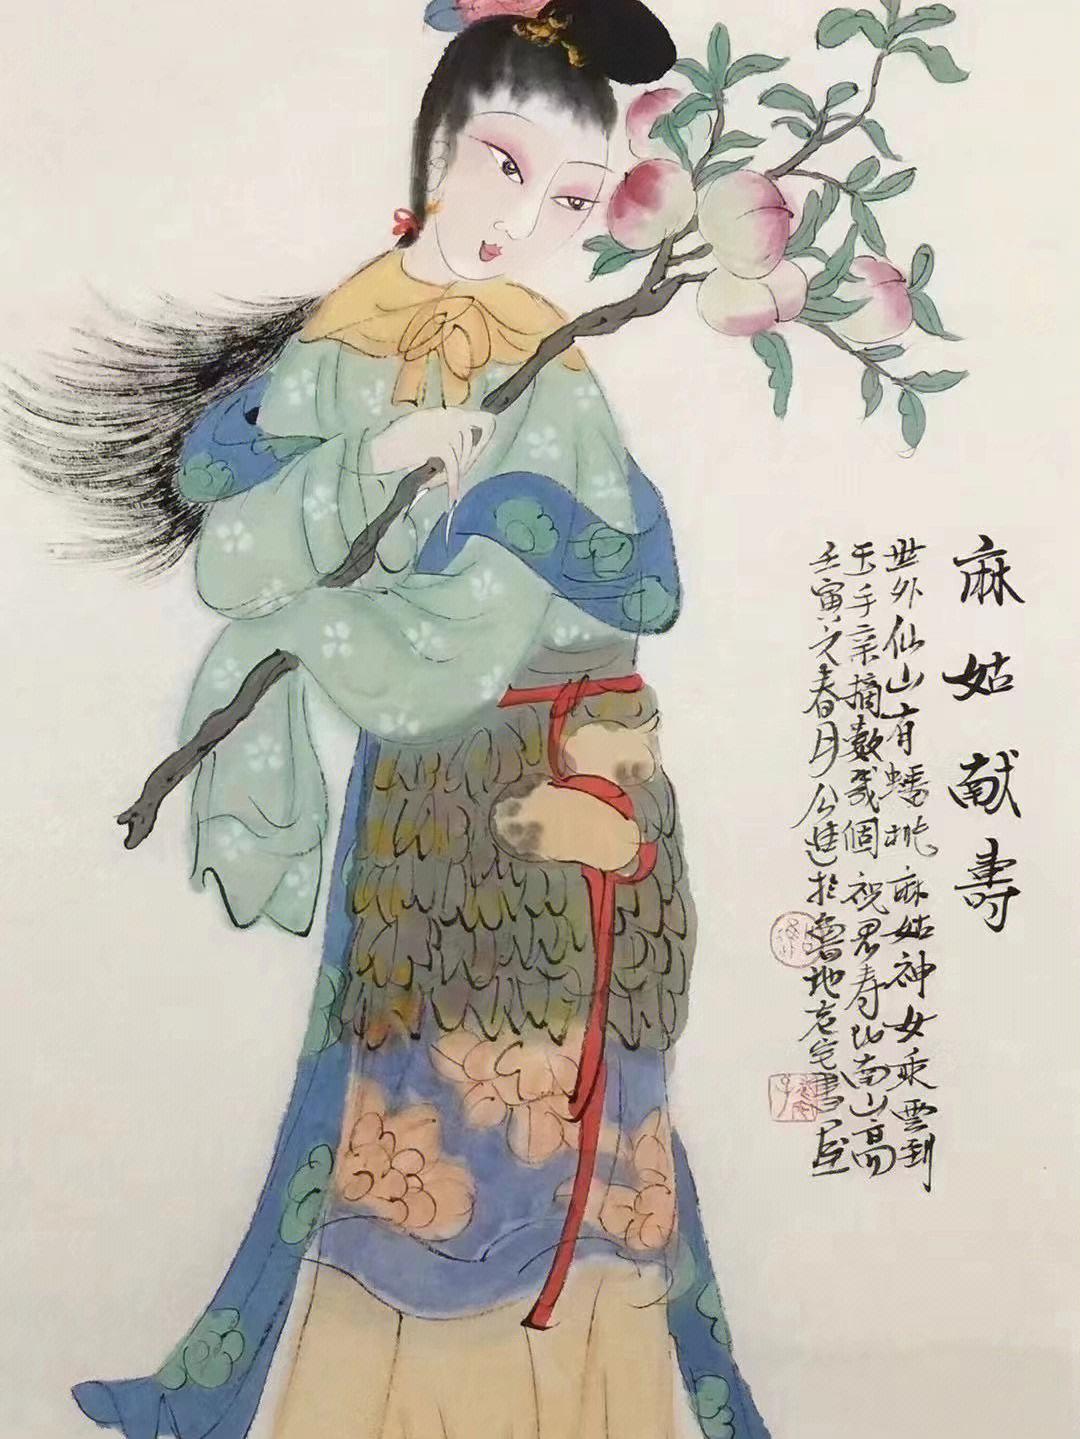 麻姑献壽
世外仙山有蟠桃麻姑神女乘雲到
玉手亲摘數幾個祝君寿比南山高
壬寅之春月公進於魯地老宅書画